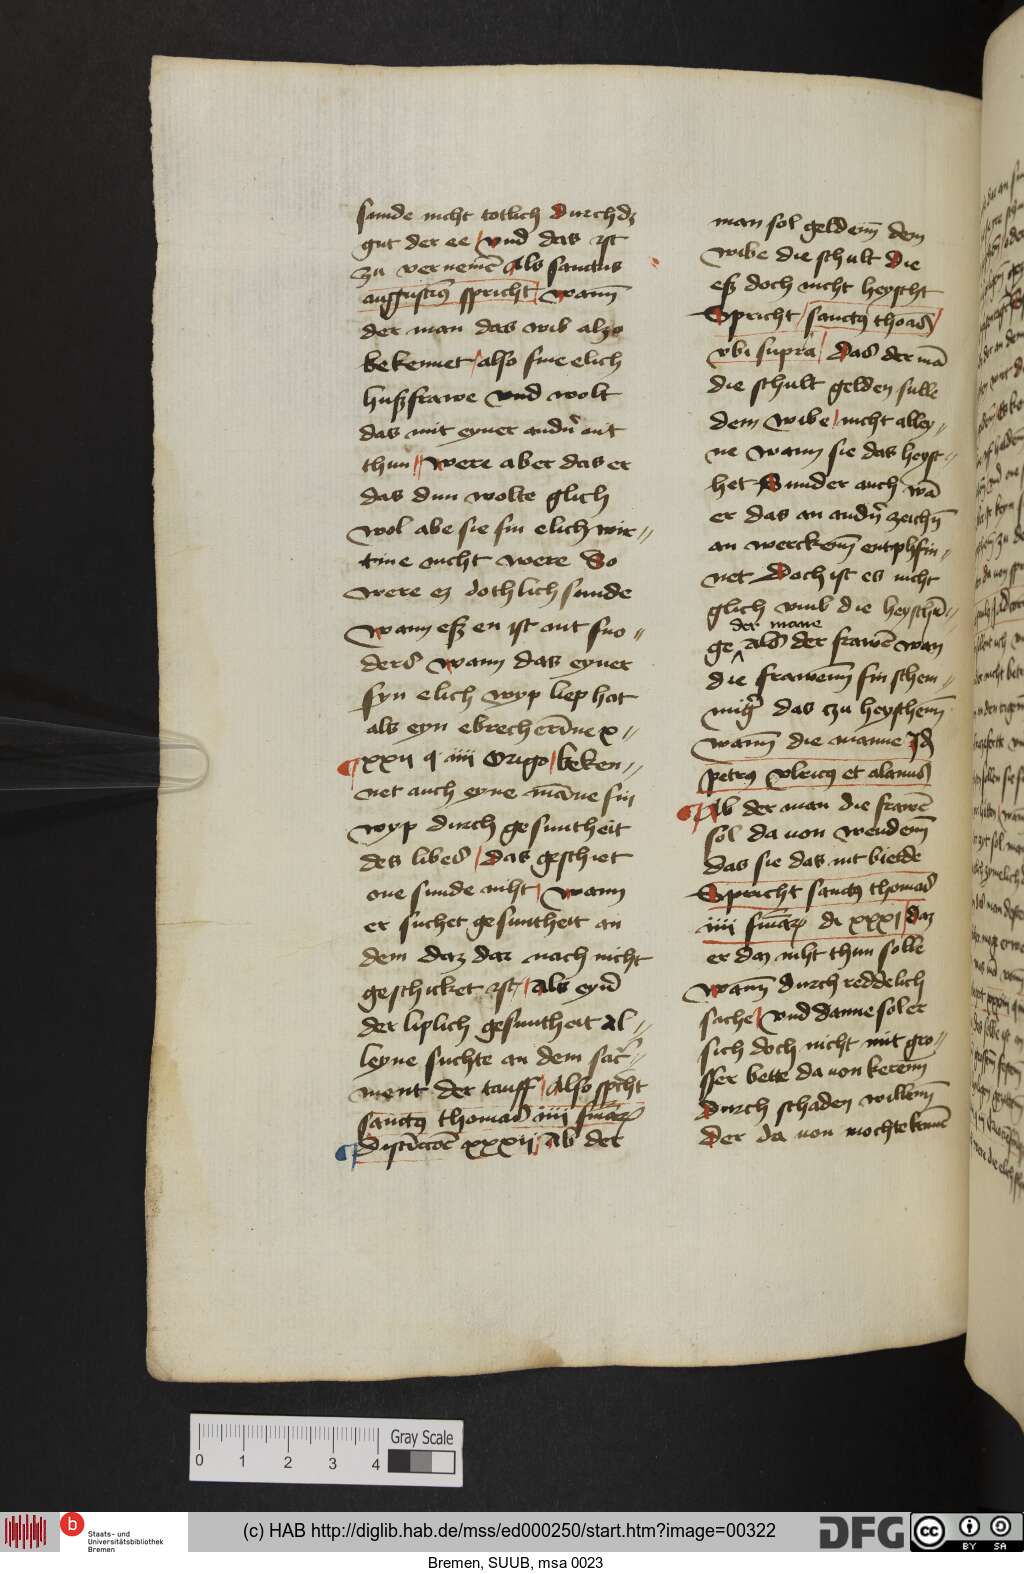 sunde nicht totlich Durch dz
gut der ee / vnd das ist
zu vernemē Als sanctus
augustin9 spricht / wann̄
der man das wib alzo
bekennet / also sine elich
hußfrawe vnd wolt
das mit eyner andn̄ nit
thun // Were aber das er
das dun wolte glich
wol abe sie sin elich wir-//
tine nicht were So
were ez dothlich sunde
Wann eß en ist nit sno //
ders Wann das eyner
syn elich wyp liep hat
als eyn ebrecherīne x-//
xxxij q iiii Origo / beken-//
net auch eyne māne sin
wyp durch gesuntheit
des libes / das geschiet
one sunde niht / Wann
er suchet gesuntheit an
dem daz dar nach nicht
geschicket ist / Als eyn̄
der liplich gesuntheit Al-//
leyne suchte an dem sac̄r-//
ment der tauff / Also spc̄ht
sanct9 thomas iiii sniar
Distīctōe xxxij / Ab det
man sol geldenn̄ dem
wibe die schult Die
eß doch nicht heyscht
Spricht / sanct9 thoas /
vbi supra / Das der mā
die schult gelden sulle
dem wibe / nicht alley-//
ne wann sie das heysc-//
het Sunder auch wā
er das an andn̄ zeichn̄
an werckenn̄ entphfin-//
net Doch ist es nicht
glich vmb die heyschū-//
der mane
ge Als der frawē wan
die frawenn̄ sin schem-//
nigr̄ das czu heyschenn̄
wann̄ die manne Id
petrus vlricus et alanus
Ab der man die frawē
sol da von wendenn̄
das sie das nit bietde
Spricht sanct9 thomas
iiii sniar di xxxi / daz
er daz niht thun solle
wann̄ durch reddelich
sache / vnd danne sol er
sich doch nicht mit gro-//
sser bette da von kerenn
Durch schaden willenn̄
Der da von mochte kumē
Gray Scale
0 1 2 3 4
b
Staats- und
Universitätsbibliothek
Bremen
(c) HAB http://diglib.hab.de/mss/ed000250/start.htm?image=00322
DFG
cc
BY SA
Bremen, SUUB, msa 0023